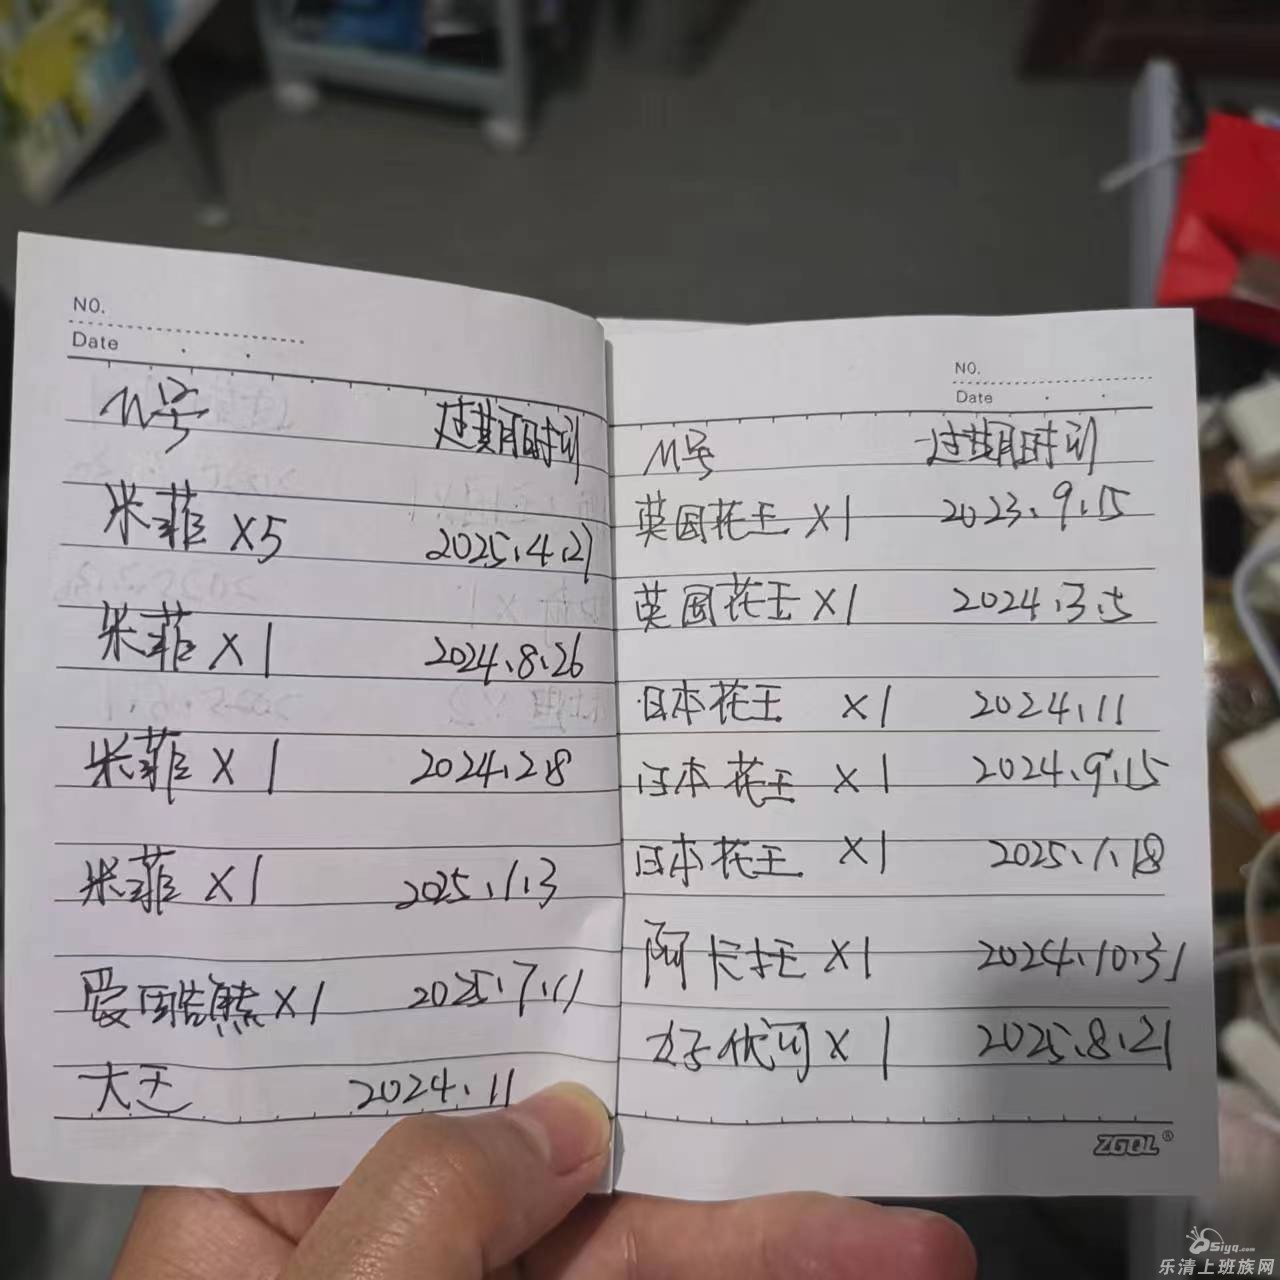 NO.
Date
M号 过期时间
米菲 X5 2025.4.27
米菲 X1 2024.8.26
米菲 X1 2024.2.8
米菲 X1 2025.1.3
爱酷熊 X1 2025.7.11
大王 2024.11
NO.
Date
M号 过期时间
英国花王 X1 2023.9.15
英国花王 X1 2024.3.5
日本花王 X1 2024.11
日本花王 X1 2024.9.15
日本花王 X1 2025.1.18
阿卡托 X1 2024.10.31
X1 2025.8.21
ZGQL®
Siyq.com
乐清上班族网